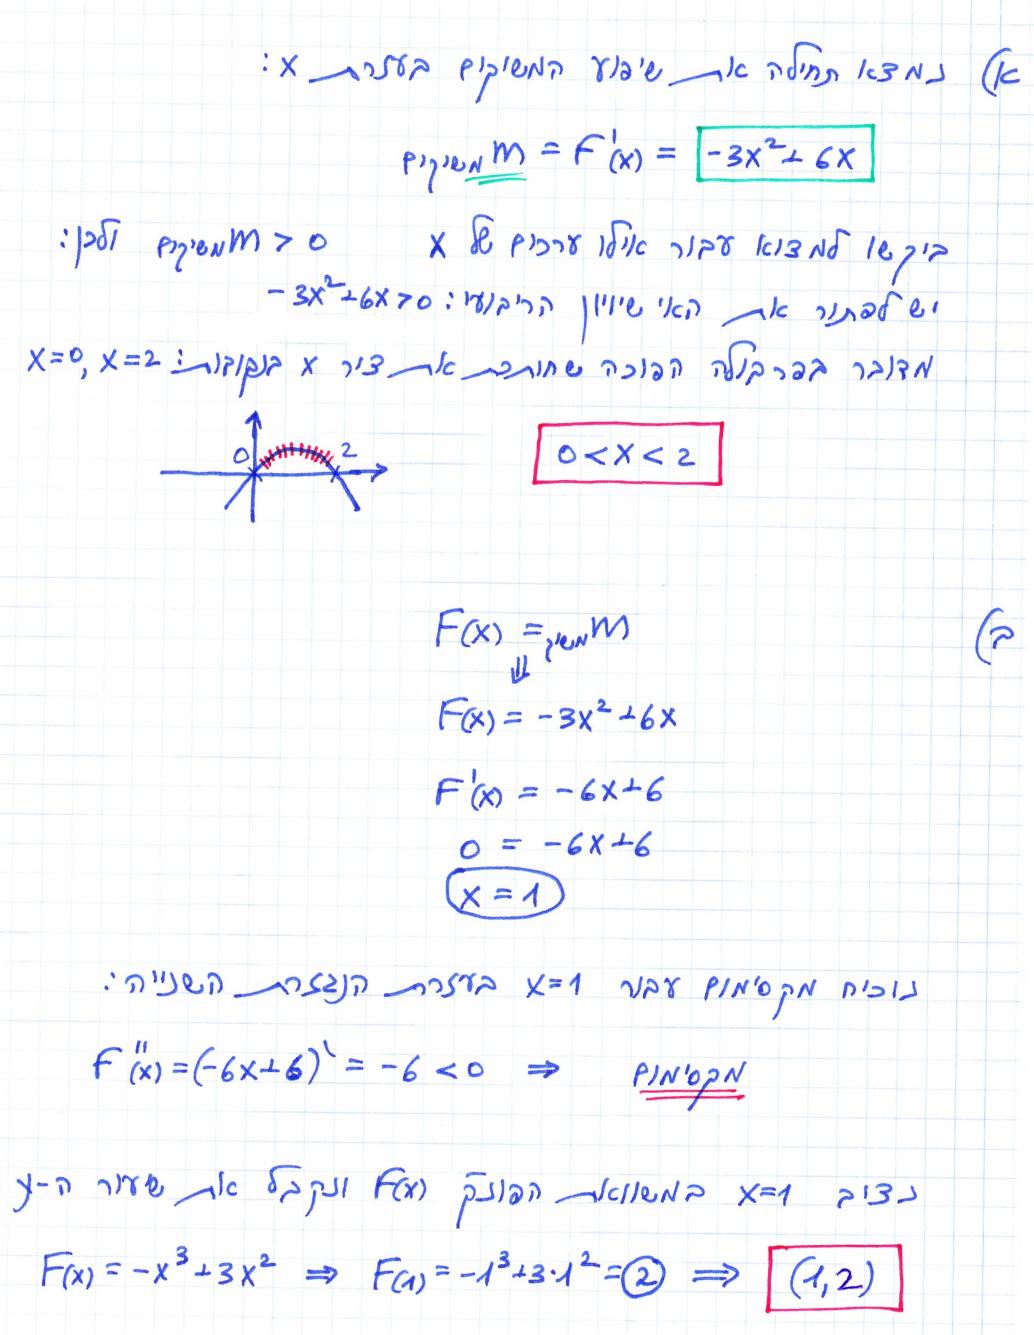 א) נמצא תחילה את שיפוע המשיקים בעזרת x:
m משיקים = F'(x) = -3x²+6x
ביקשו למצוא עבור אילו ערכים של x m משיקים > 0 ולכן:
יש לפתור את האי שיוויון הריבועי: -3x²+6x>0
מדובר בפרבולה הפוכה שחותכת את ציר x בנקודות: x=0, x=2
0 2
0<x<2
ב)
F(x) = m משיק
⇓
F(x) = -3x²+6x
F'(x) = -6x+6
0 = -6x+6
x=1
נוכיח מקסימום עבור x=1 בעזרת הנגזרת השנייה:
F''(x) = (-6x+6)' = -6 <0 ⇒ מקסימום
נציב x=1 במשוואת הפונק' F(x) ונקבל את שעור ה-y
F(x) = -x³+3x² ⇒ F(1) = -1³+3·1² = 2 ⇒ (1,2)